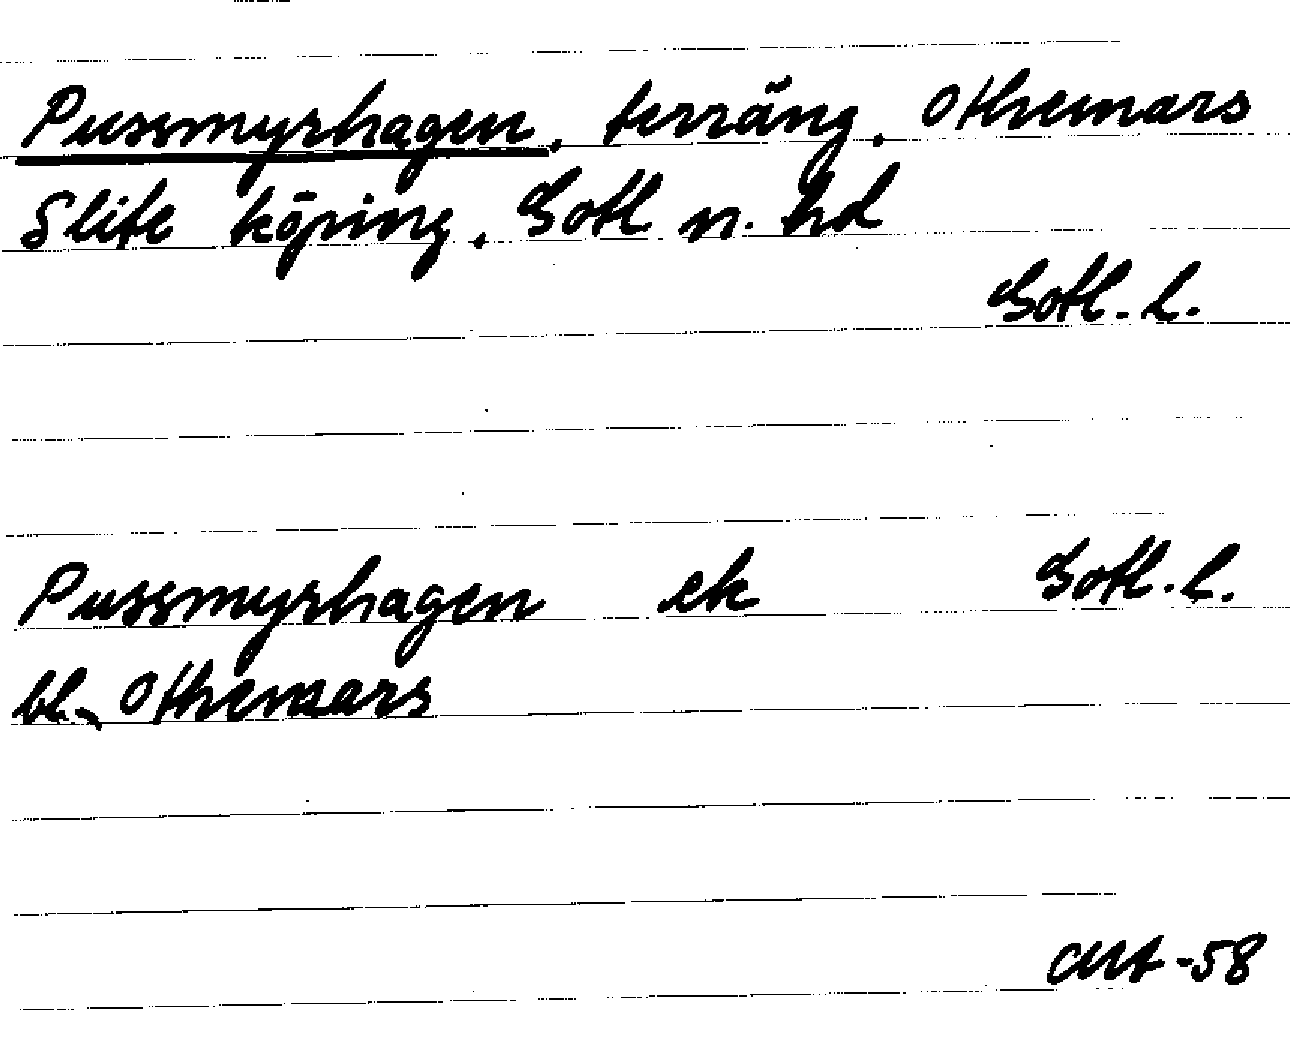 Pussmyrhagen, terräng, Othemars
Slite köping, Gotl n. hd
Gotl. L.
Pussmyrhagen ek Gotl. L.
bl., Othemars
-58